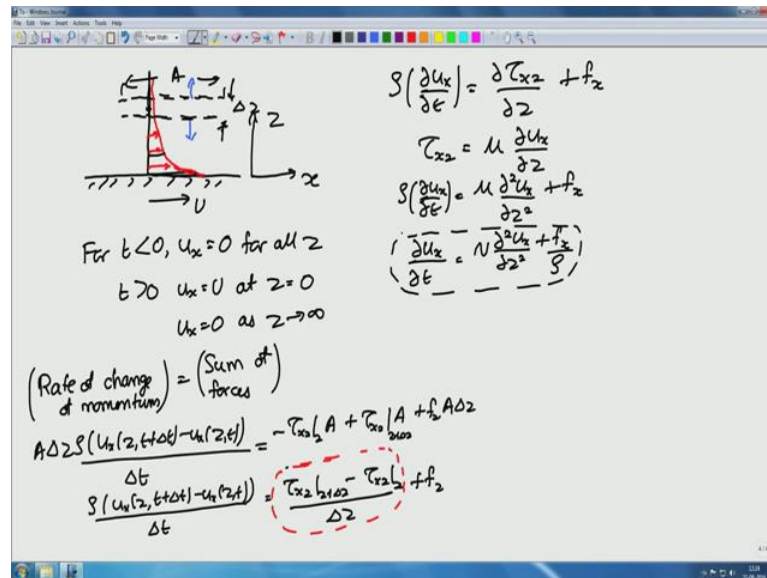 File Edit View Insert Actions Tools Help
A
Δz
z
x
U
For t<0, uₓ=0 for all z
t>0 uₓ=U at z=0
uₓ=0 as z→∞
(Rate of change of momentum) = (Sum of forces)
AΔz ρ(uₓ(z,t+Δt)-uₓ(z,t))/Δt = -τₓz|z A + τₓz|z+Δz A + fz AΔz
ρ(uₓ(z,t+Δt)-uₓ(z,t))/Δt = (τₓz|z+Δz - τₓz|z)/Δz + fz
ρ(∂uₓ/∂t) = ∂τₓz/∂z + fₓ
τₓz = μ ∂uₓ/∂z
ρ(∂uₓ/∂t) = μ ∂²uₓ/∂z² + fₓ
∂uₓ/∂t = ν ∂²uₓ/∂z² + fₓ/ρ